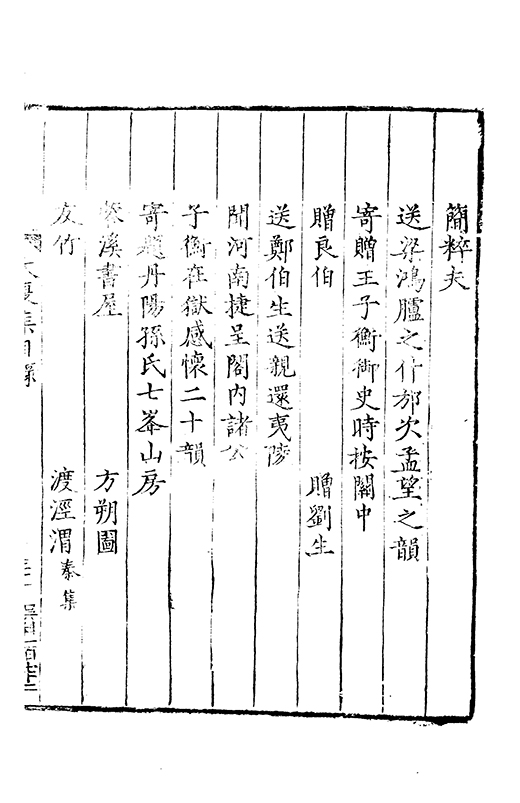 簡粹夫
送梁鴻臚之什邡次孟望之韻
寄贈王子衡御史時按關中
贈良伯　贈劉生
送鄭伯生送親還夷陵
聞河南捷呈閣內諸公
子衡在獄感懷二十韻
寄題丹陽孫氏七峯山房
紫溪書屋　方朔圖
友竹　渡涇渭秦集
大復集目錄